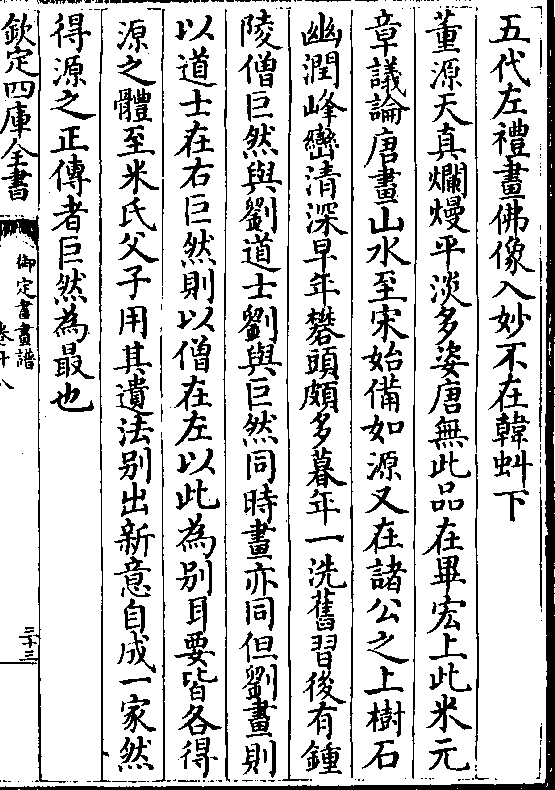 五代左禮畫佛像入妙不在韓虬下
董源天真爛熳平淡多姿唐無此品在畢宏上此米元
章議論唐畫山水至宋始備如源又在諸公之上樹石
幽潤峰巒清深早年礬頭頗多暮年一洗舊習後有鍾
陵僧巨然與劉道士劉與巨然同時畫亦同但劉畫則
以道士在右巨然則以僧在左以此為别耳要皆各得
源之體至米氏父子用其遺法别出新意自成一家然
得源之正傳者巨然為最也
欽定四庫全書
御定書畫譜
卷十八
三十三